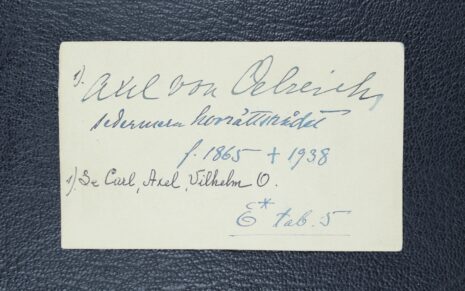 1). Axel von Oelreich,
sedermera hovrättsrådet
f. 1865 + 1938
1) Se Carl, Axel, Vilhelm O.
E* tab. 5